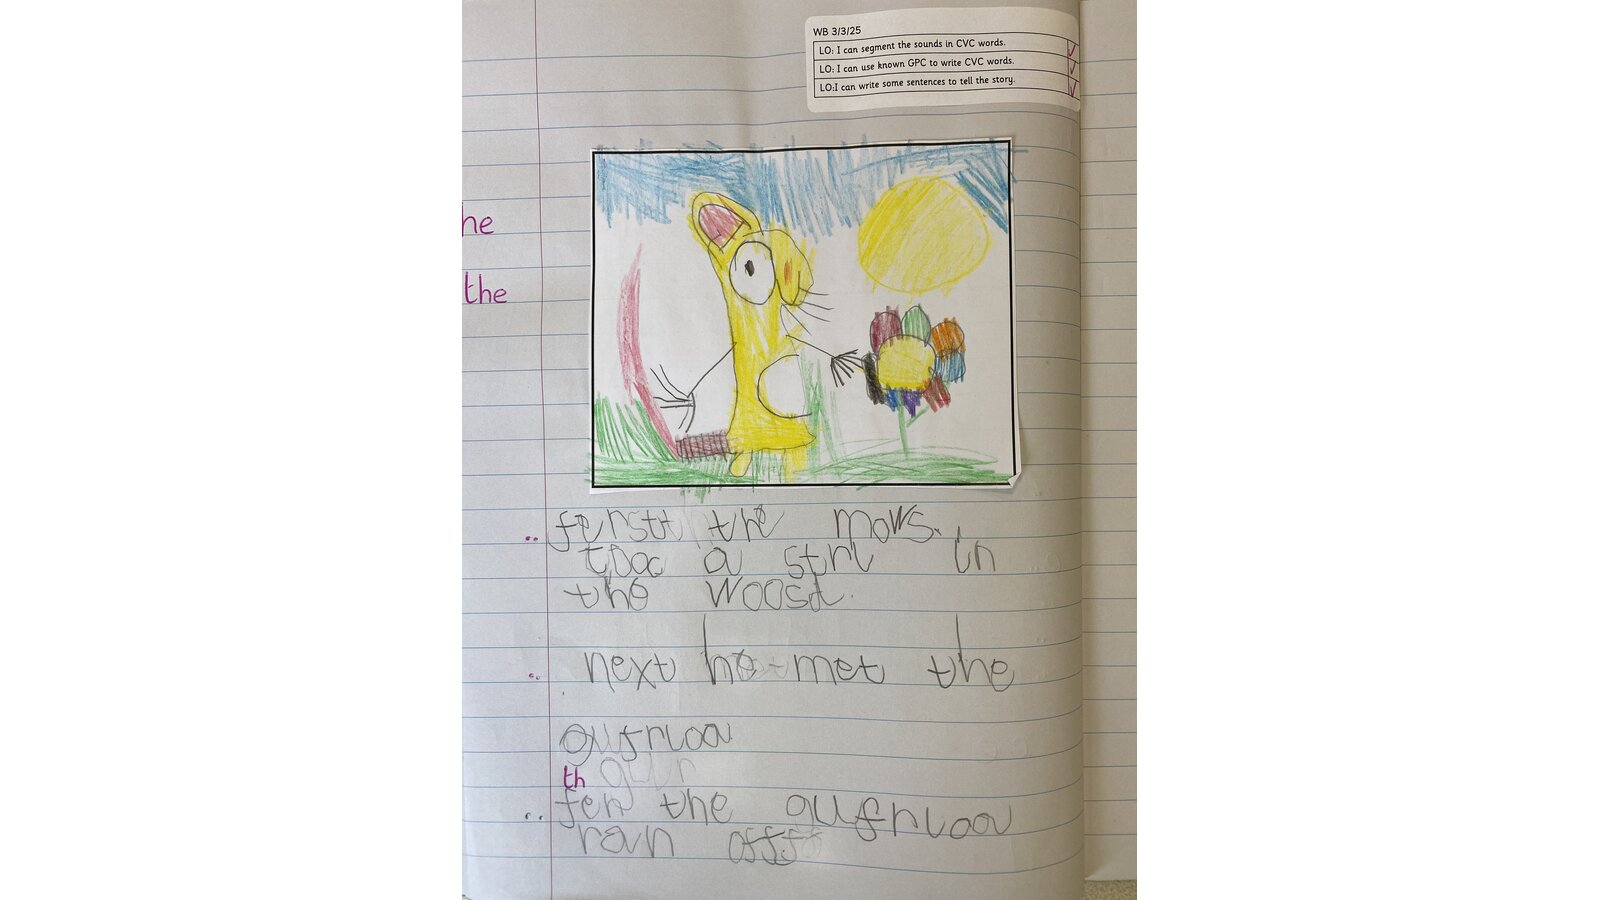 WB 3/3/25
LO: I can segment the sounds in CVC words.
LO: I can use known GPC to write CVC words.
LO:I can write some sentences to tell the story.
he
the
ferst the mows.
tooc a strl in
the woosd.
next he met the
gufrloou
th
fen the gufrloou
ran off